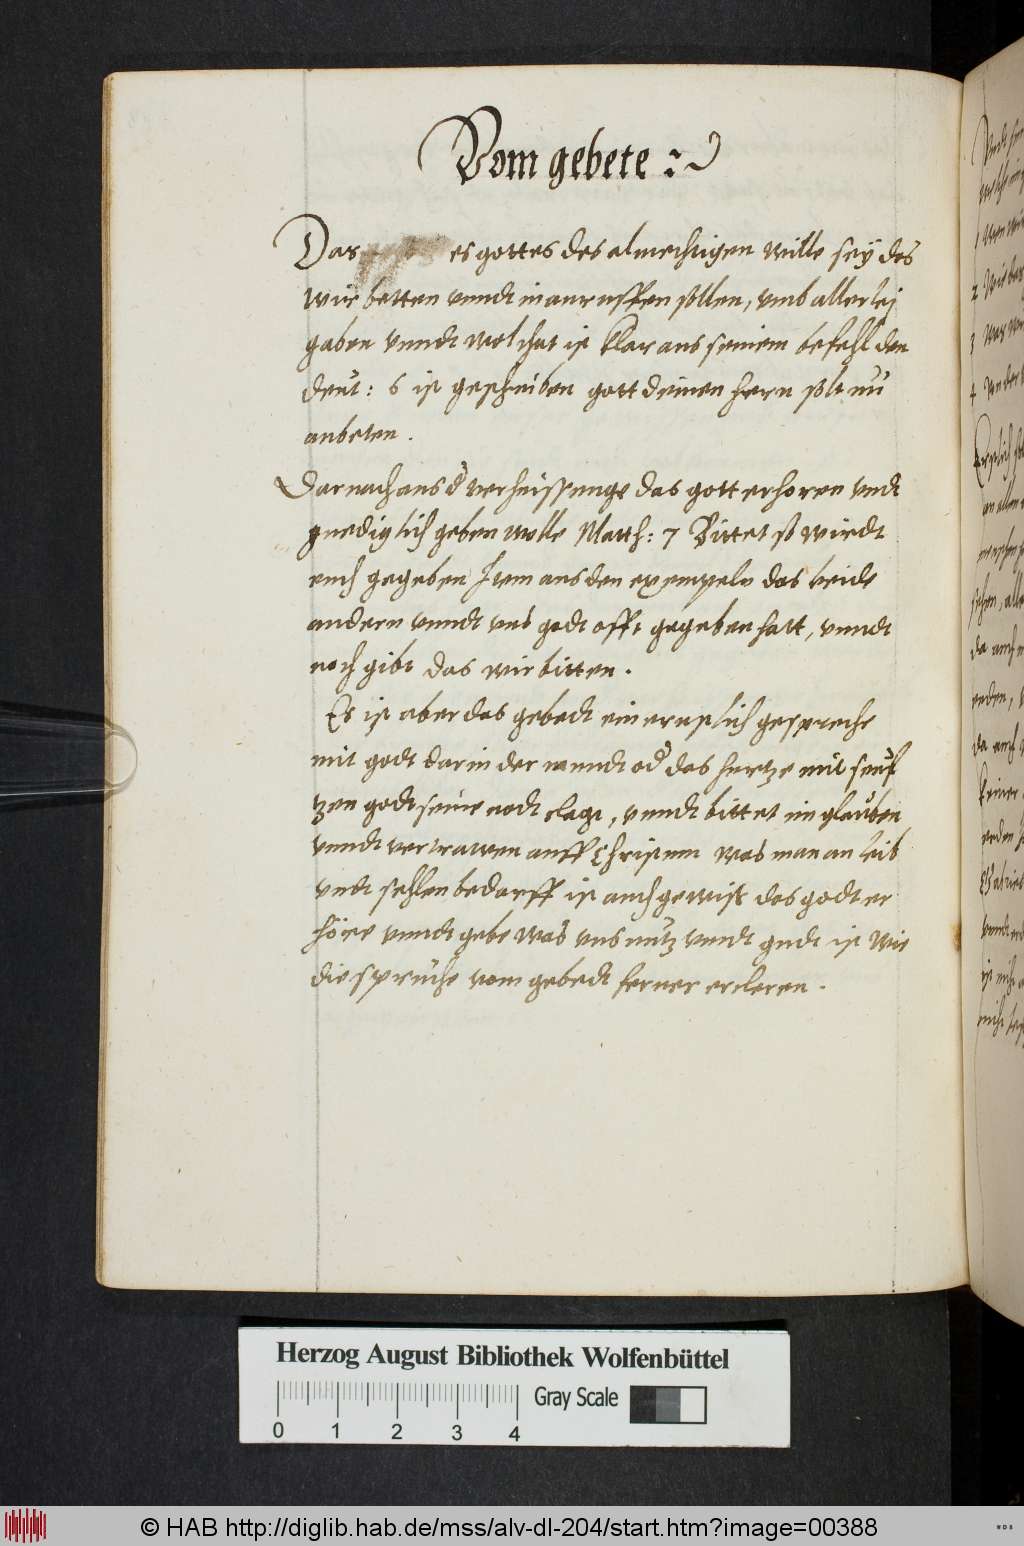 Vom gebete :~
Das es gottes des almechtigen wille sey das
wir betten vnndt in anruffen sollen, vmb allerlej
gaben vnndt wolthat ist klar aus seinem befehl den
deut: 6 ist geschriben gott deinen hern soltu
anbeten .
Darnach aus d verheissunge das gott erhoren vndt
gnediglich geben wolle Matth: 7 Bittet so wirdt
euch gegeben Item aus den exempeln das beide
andern vnndt vns godt offt gegeben hatt, vnndt
noch gibt das wir bitten .
Es ist aber das gebedt ein ernstlich gespreche
mit godt darin der mundt od das hertze mit seuf
tzen godt seine nodt clagt, vnndt bittet im glauben
vnndt vertrawen auff Christum was man an leib
vndt sehlen bedarff ist auch gewiss das godt er
höre vnndt gebe was vns nutz vnndt gudt ist wie
die sprüche vom gebedt ferner ercleren .
1
2
3
4
Herzog August Bibliothek Wolfenbüttel
Gray Scale
0 1 2 3 4
© HAB http://diglib.hab.de/mss/alv-dl-204/start.htm?image=00388